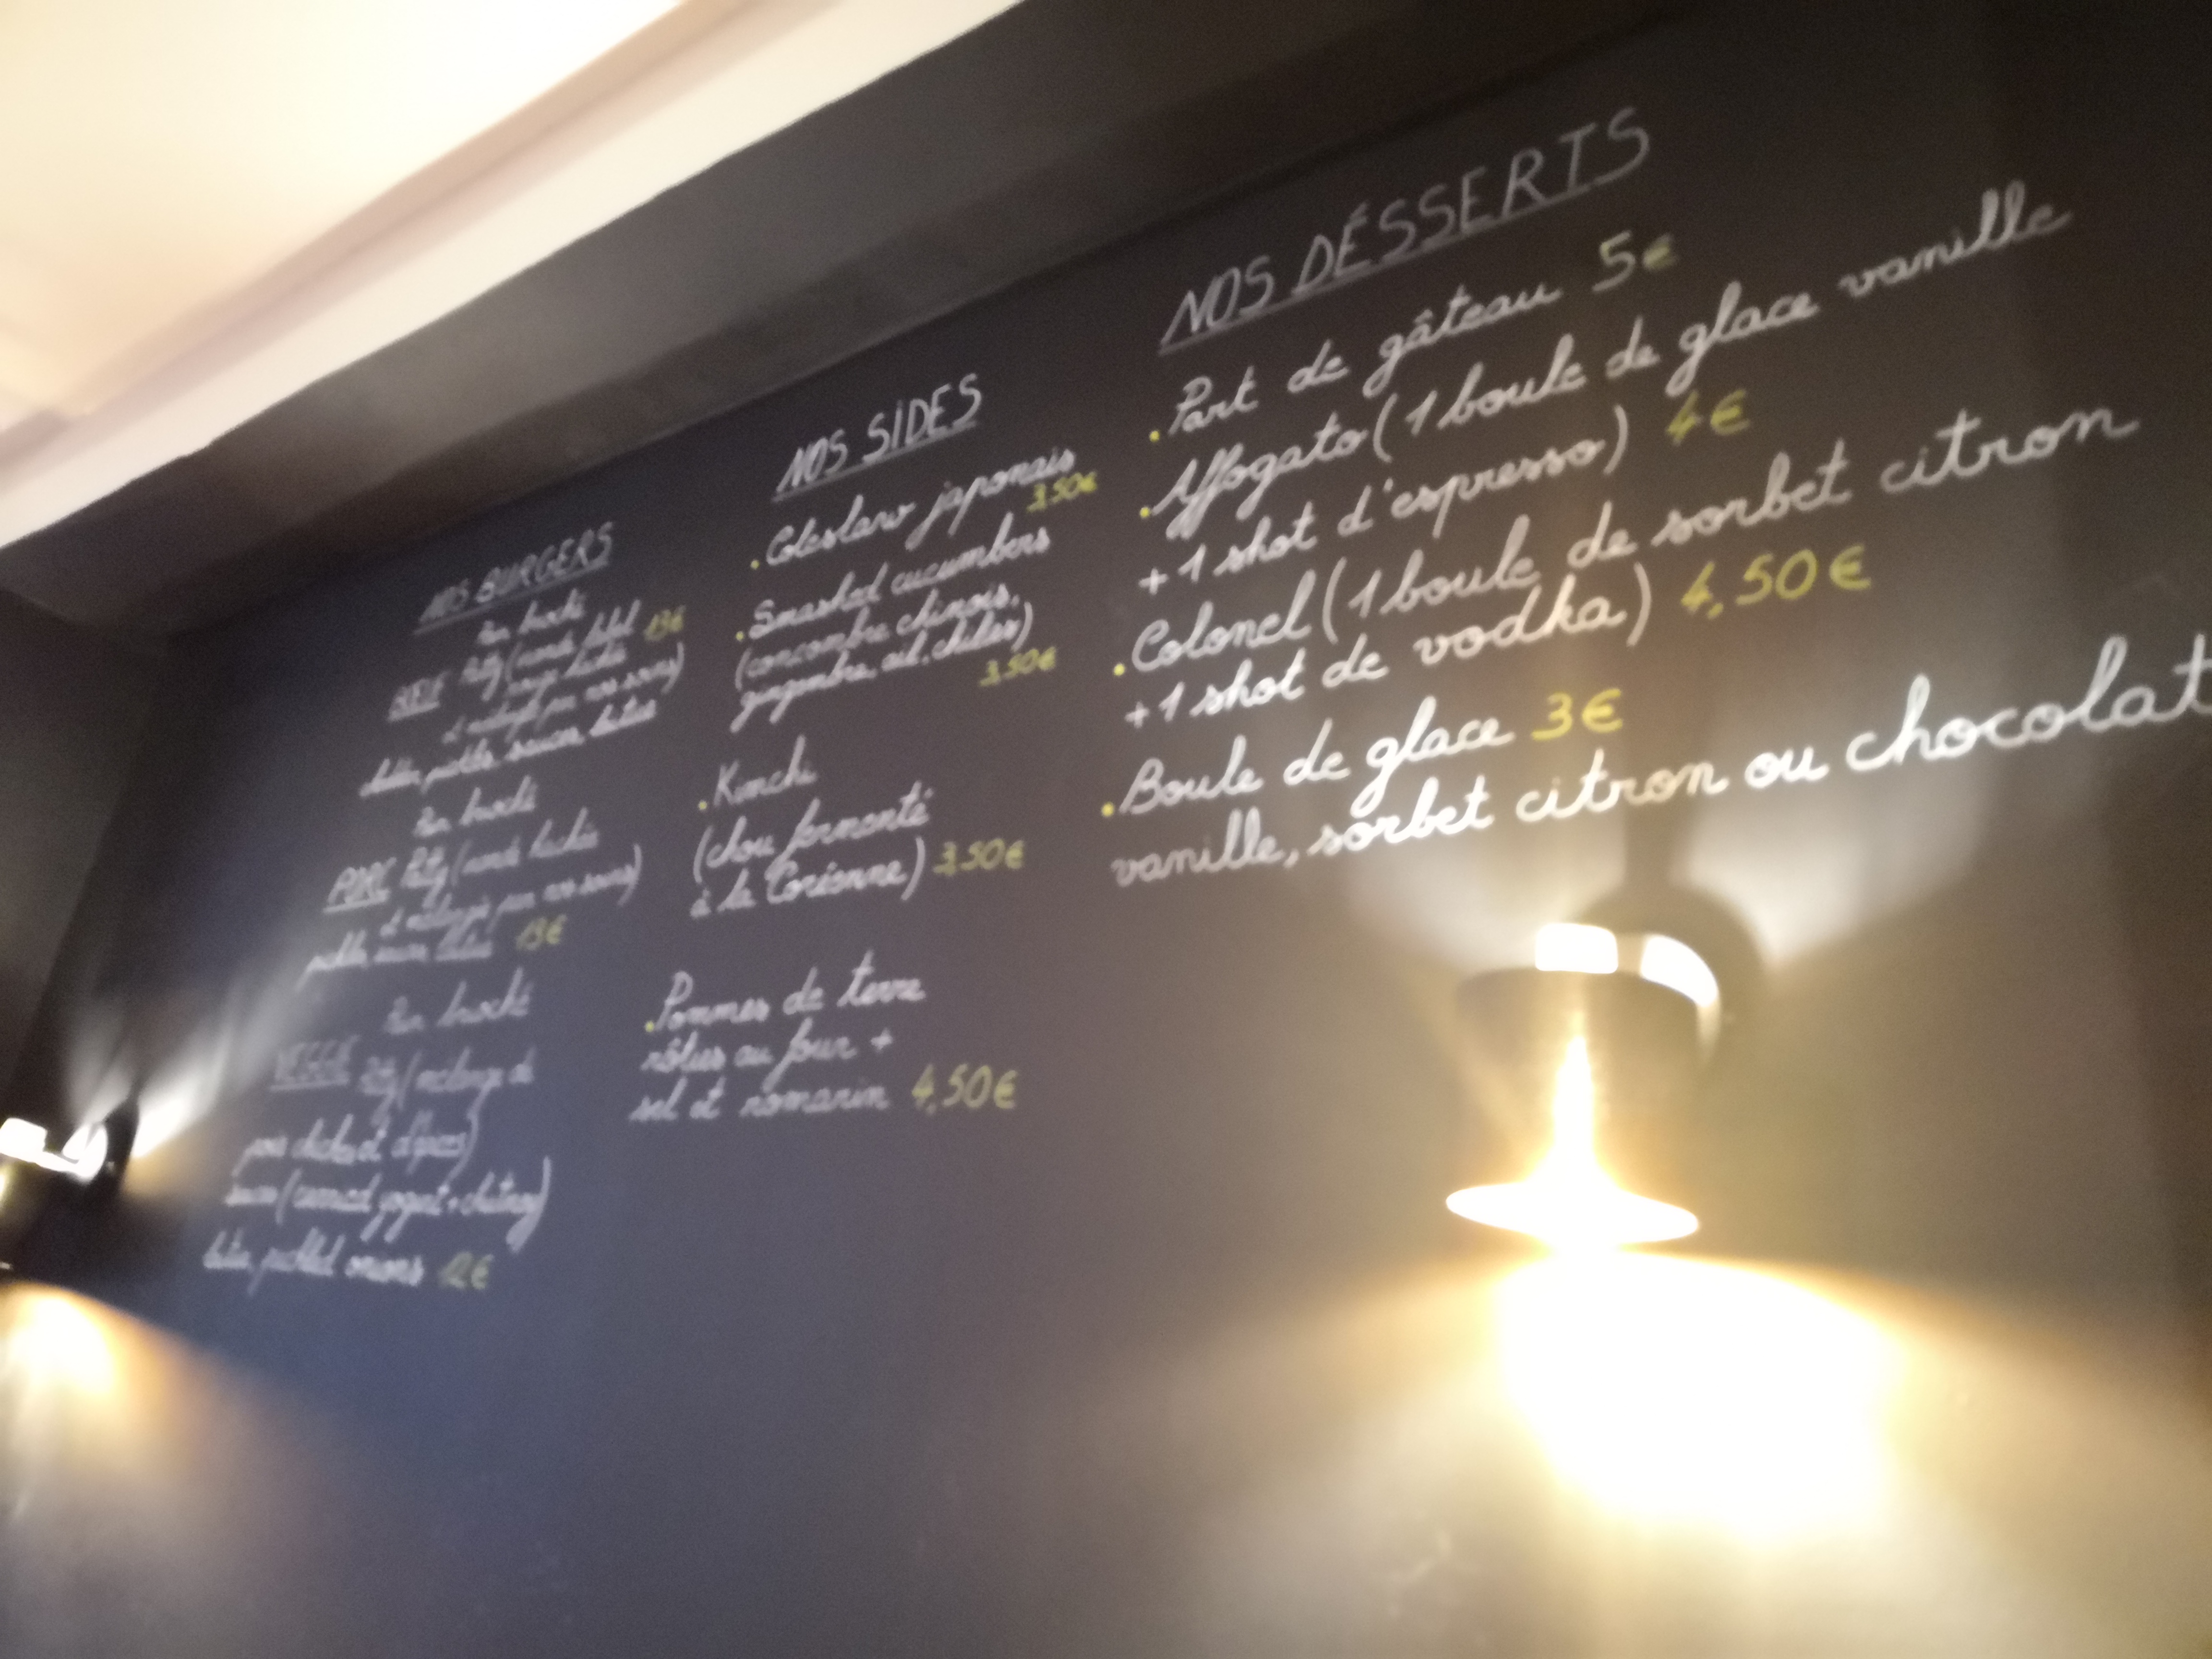 NOS BURGERS
Pain brioché
Patty (viande halal 13€
BŒUF
et mélangée par nos soins)
pickles, sauce, laitue
Pain brioché
PORC Patty (viande hachée
et mélangée par nos soins)
pickles, sauce, laitue 13€
Pain brioché
VEGGIE Patty (mélange de
pois chiches et d'épices)
sauce (curried yogurt + chutney)
laitue, pickled onions 12€
NOS SIDES
. Coleslaw japonais
3,50€
. Smashed cucumbers
(concombre chinois,
gingembre, ail, chilies)
3,50€
. Kimchi
(chou fermenté
à la Coréenne) 3,50€
. Pommes de terre
rôties au four +
sel et romarin 4,50€
NOS DÉSSERTS
. Part de gâteau 5€
. Affogato (1 boule de glace vanille
+ 1 shot d'espresso) 4€
. Colonel (1 boule de sorbet citron
+ 1 shot de vodka) 4,50€
. Boule de glace 3€
vanille, sorbet citron ou chocolat